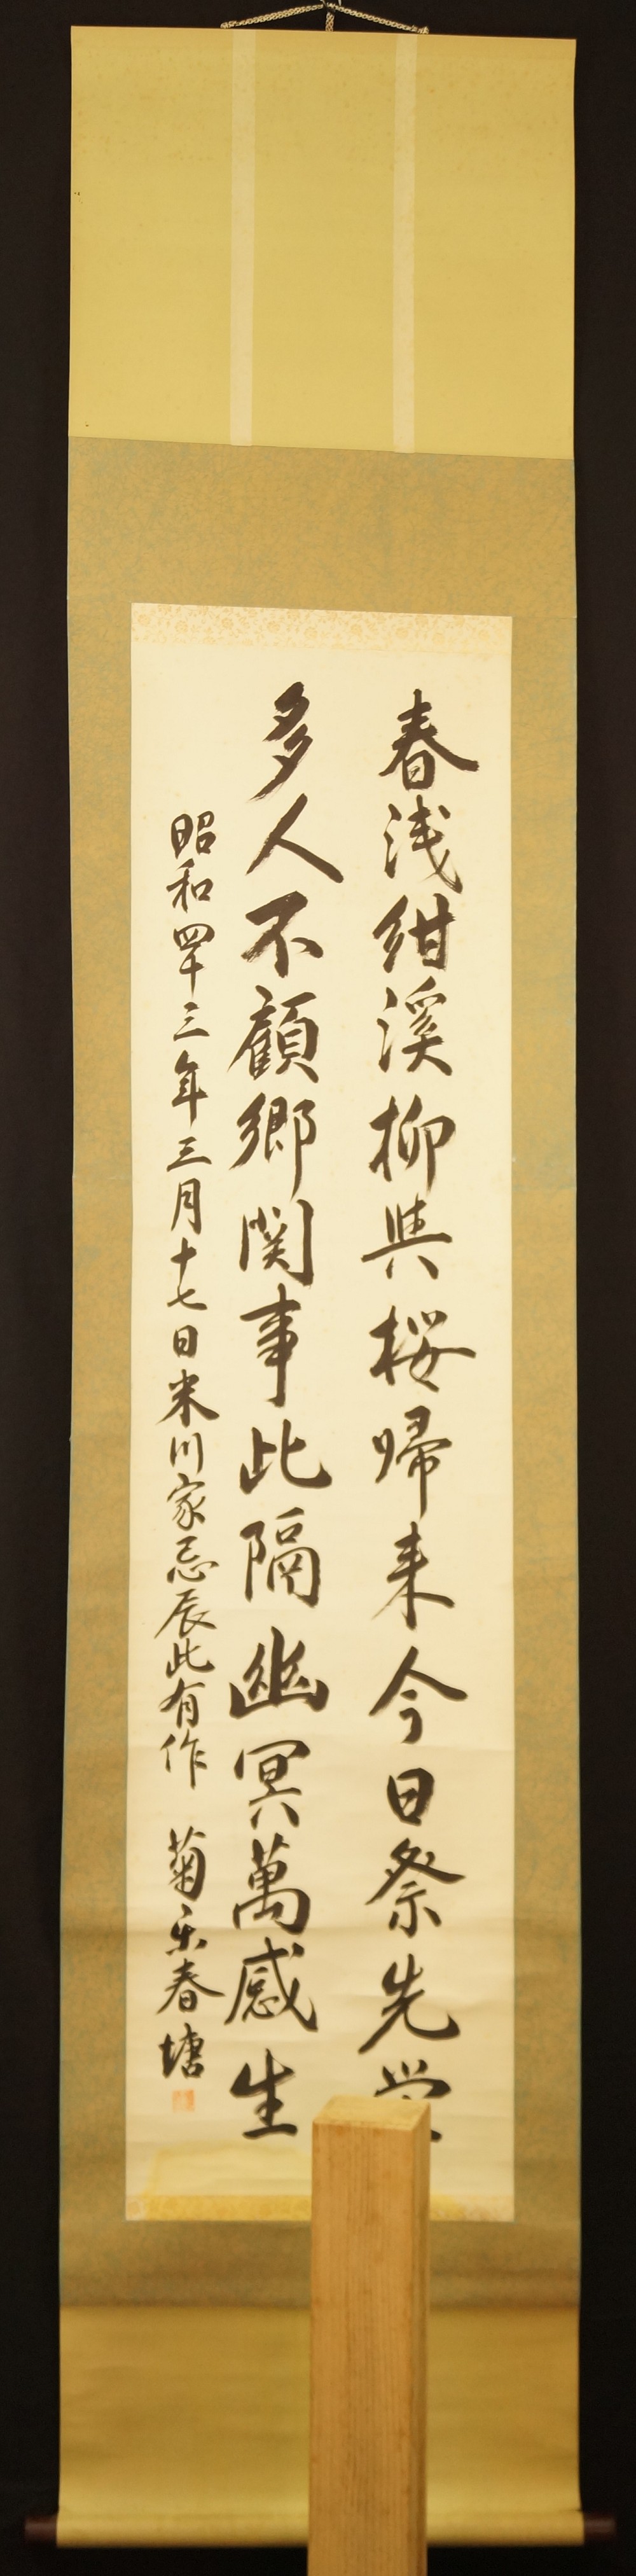 春浅紺溪柳與桜帰来今日祭先
多人不顧郷関事此隔幽冥萬感生
昭和四十三年三月十七日米川家忌辰此有作　菊禾春塘